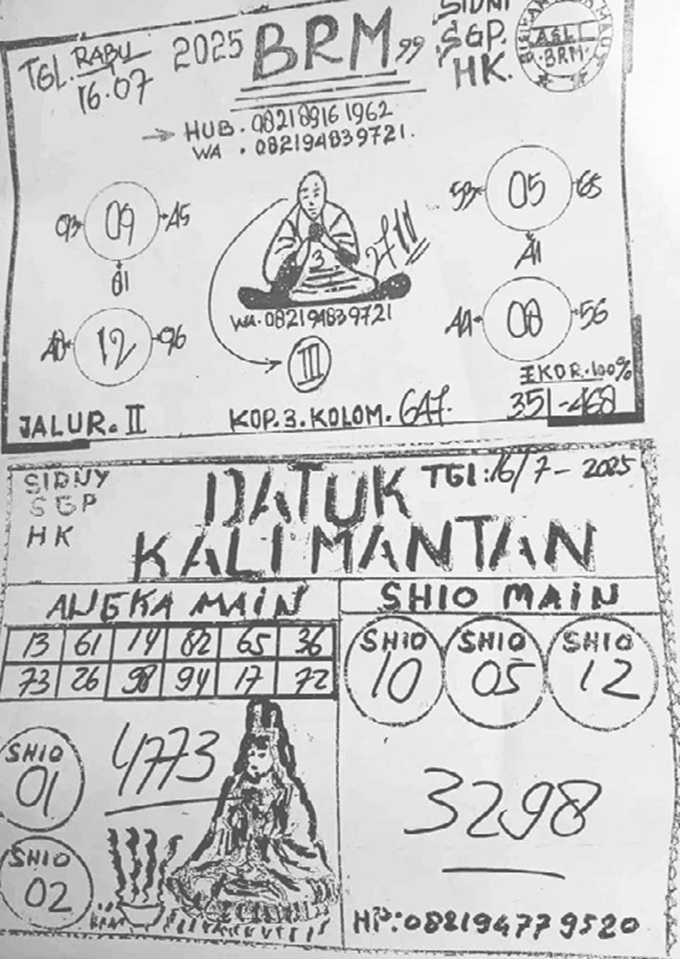 TGL. RABU
16.07
2025 BRM 99
SIDNI
SGP.
HK.
ASLI
BRM
HUB. 082189161962
WA . 082194839721.
09
45
01
05
65
A1
3
2711
WA.082194839721
12
96
08
56
III
EKOR.100%
351-468
JALUR. II
KOP.3.KOLOM. 647.
SIDNY
SGP
HK
DATUK
KALIMANTAN
TGl:16/7-2025
ANGKA MAIN
13 61 14 82 65 36
73 26 98 94 17 72
SHIO MAIN
SHIO
10
SHIO
05
SHIO
12
SHIO
01
4773
3298
SHIO
02
HP:082194779520